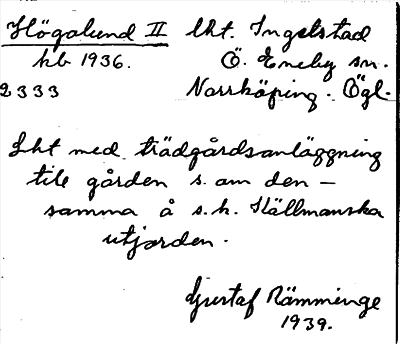 Högalund II lht. Ingelstad
hb 1936. Ö. Eneby sn.
2333 Norrköping. Ögl.
Lht med trädgårdsanläggning
till gården s. om den –
samma å s.k. Källmanska
utjorden.
Gustaf Rämminge
1939.